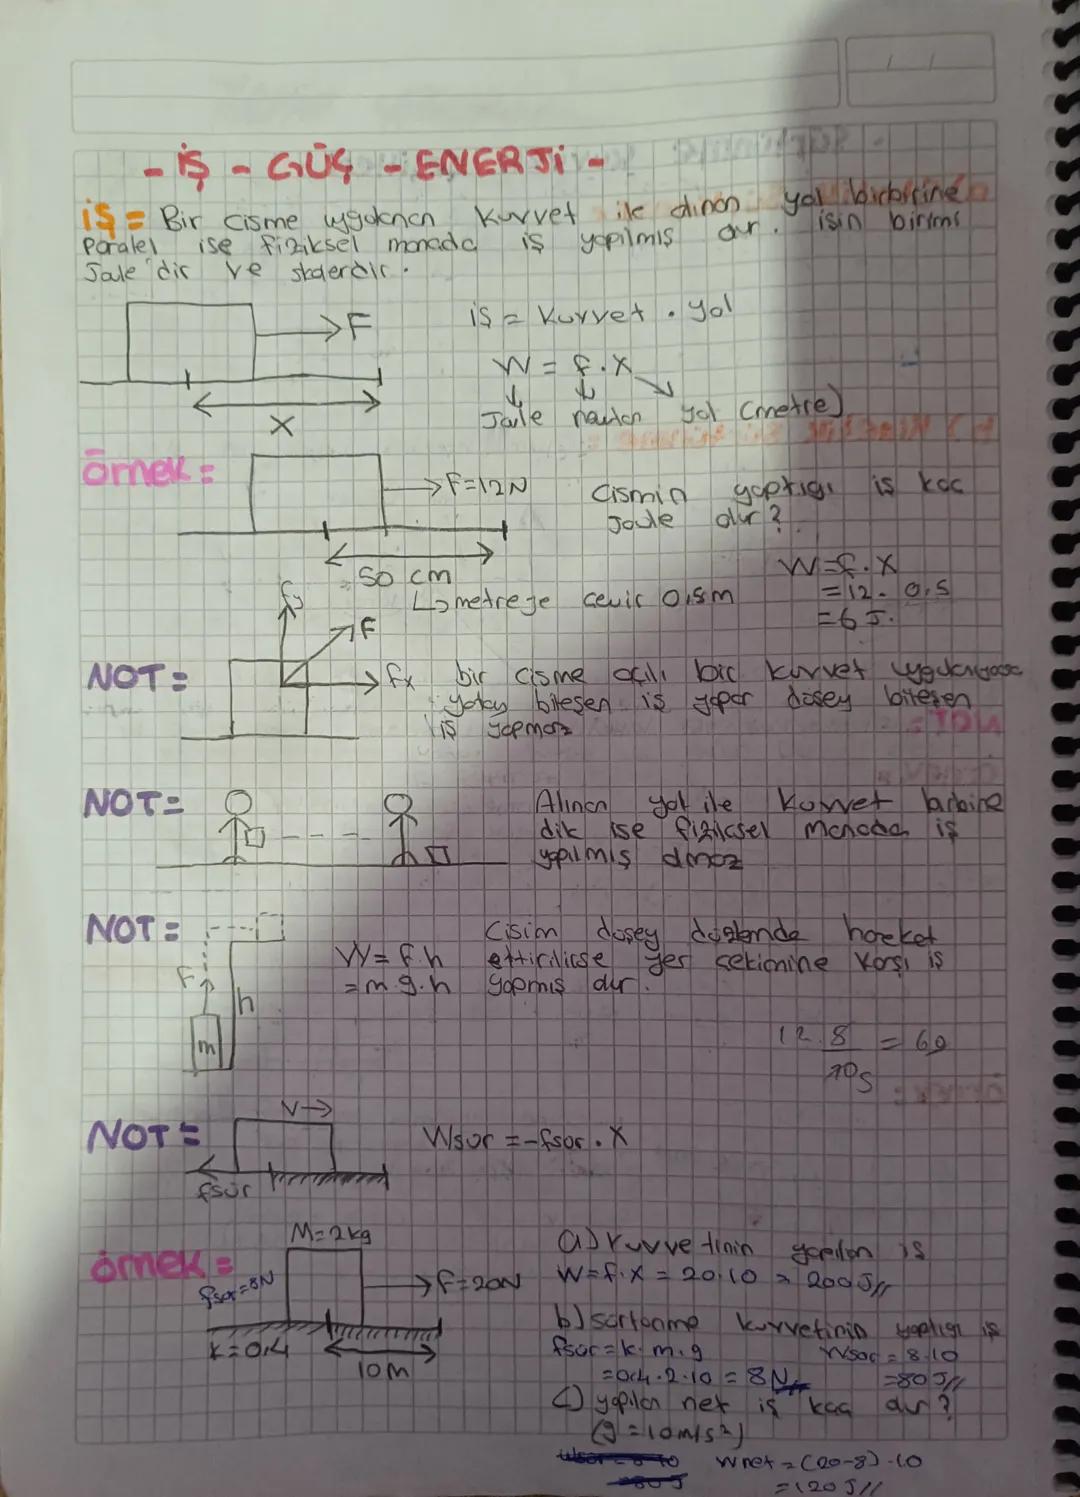 - İŞ - GÜÇ - ENERJİ -
İŞ = Bir cisme uygulanan kuvvet ile alınan yol birbirine
paralel ise fiziksel manada iş yapılmış olur. işin birimi
Joule'dir ve skalerdir.
F
iş = Kuvvet . yol
W = f . x
Joule newton yol (metre)
x
örnek =
F=12N
Cismin yaptığı iş kaç
Joule dur?
50 cm
metreye çevir 0,5m
W=f.x
=12. 0,5
=6 J.
fy
F
fx
NOT=
bir cisme açılı bir kuvvet uygulanırsa
yatay bileşen iş yapar düşey bileşen
iş yapmaz
NOT=
Alınan yol ile kuvvet birbirine
dik ise fiziksel manada iş
yapılmış olmaz
NOT=
F
h
m
W= f.h
=m.g.h
Cisim düşey düzlemde hareket
ettirilirse yer çekimine karşı iş
yapmış olur.
12.8
10s
NOT=
V→
fsür
Wsür =-fsür . x
örnek =
M=2kg
fsür=8N
F=20N
k=0,4
10m
a) kuvvetinin yapılan iş
W=f.x = 20.10 = 200J//
b) sürtünme kuvvetinin yaptığı iş
fsür=k.m.g
=0,4.2.10 = 8N
Wsür = 8.10
=80J//
c) yapılan net iş kaç dır?
(g=10m/s²)
Wnet=(20-8).10
=120 J//